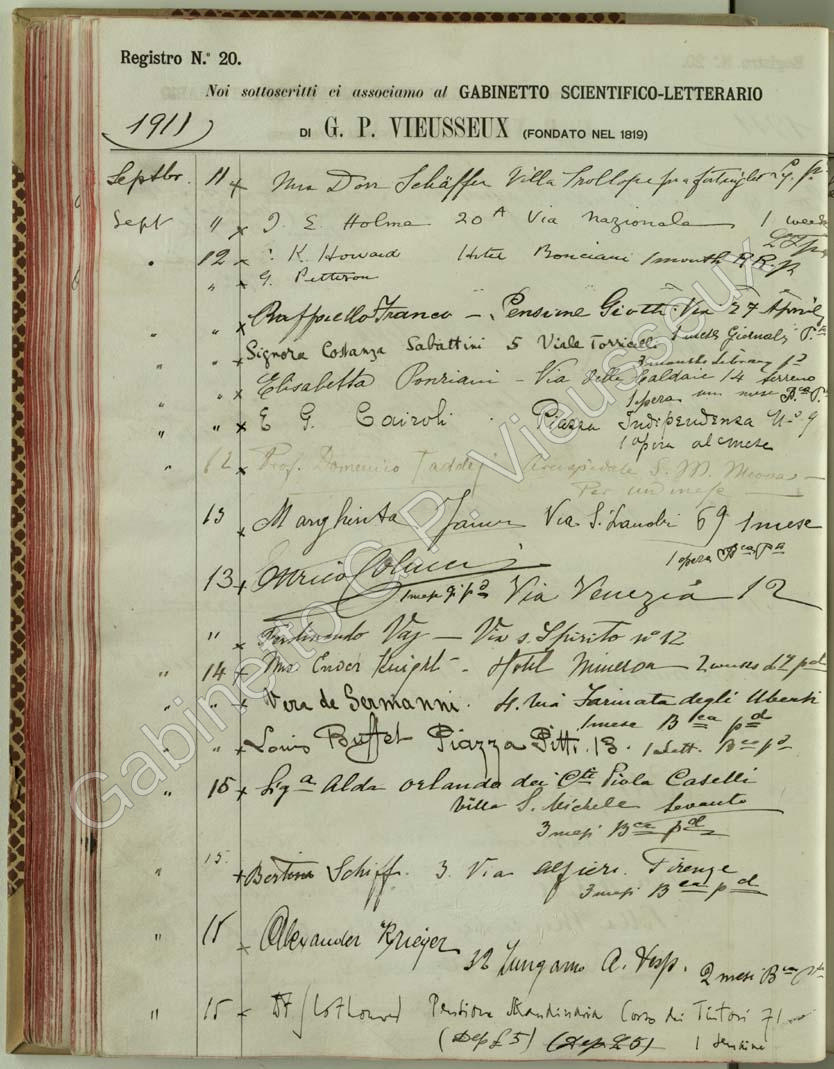 Registro N.° 20.
Noi sottoscritti ci associamo al GABINETTO SCIENTIFICO-LETTERARIO
1911
DI G. P. VIEUSSEUX (FONDATO NEL 1819)
Septbr. 11 x Schäffer Villa Trollope
Sept " x J. E. Holma 20A Via Nazionale 1 week
" 12 x K Howard Hotel Bonciani 1 month
" x G. Petterson
" " x Raffaello Franco – Pensione Giotti Via 27 Aprile
1 mese Giornali
" " x Signora Costanza Sabattini 5 Viale Torricelli
3 months library pd
" " x Elisabetta Ponziani – Via delle Caldaie 14 terreno
1 opera un mese
" " x E G. Cairoli . Piazza Indipendenza No 9
1 opera al mese
" 12 x Prof. Domenico Taddei Arcispedale S. M. Nuova –
Per un mese
13 x Margherita Via S. Zanobi 69 1 mese
1 opera Bca Pa
13 x Enrico Colucci
Via Venezia 12
" x Ferdinando Vaj – Via S. Spirito no 12
" 14 x Knight – Hotel Minerva 2 weeks
" " x Vera de Germanni. 4. Via Farinata degli Uberti
1 mese Bca pd
" " x Louis Buffet Piazza Pitti. 13. 1 sett. Bca pd
" 15 x Siga Alda Orlando dei Cti Piola Caselli
Villa S. Michele Levanto
3 mesi Bca pd
" 15. x Bertina Schiff. 3. Via Alfieri. Firenze
3 mesi Bca pd
" 15 x Alexander Krieger
32 Lungarno A. Vesp. 2 mesi Bca
" 15 x Pensione Skandinavia Corso dei Tintori 71
(Dep £ 5) (Dep. £ 5)
Gabinetto G.P. Vieusseux